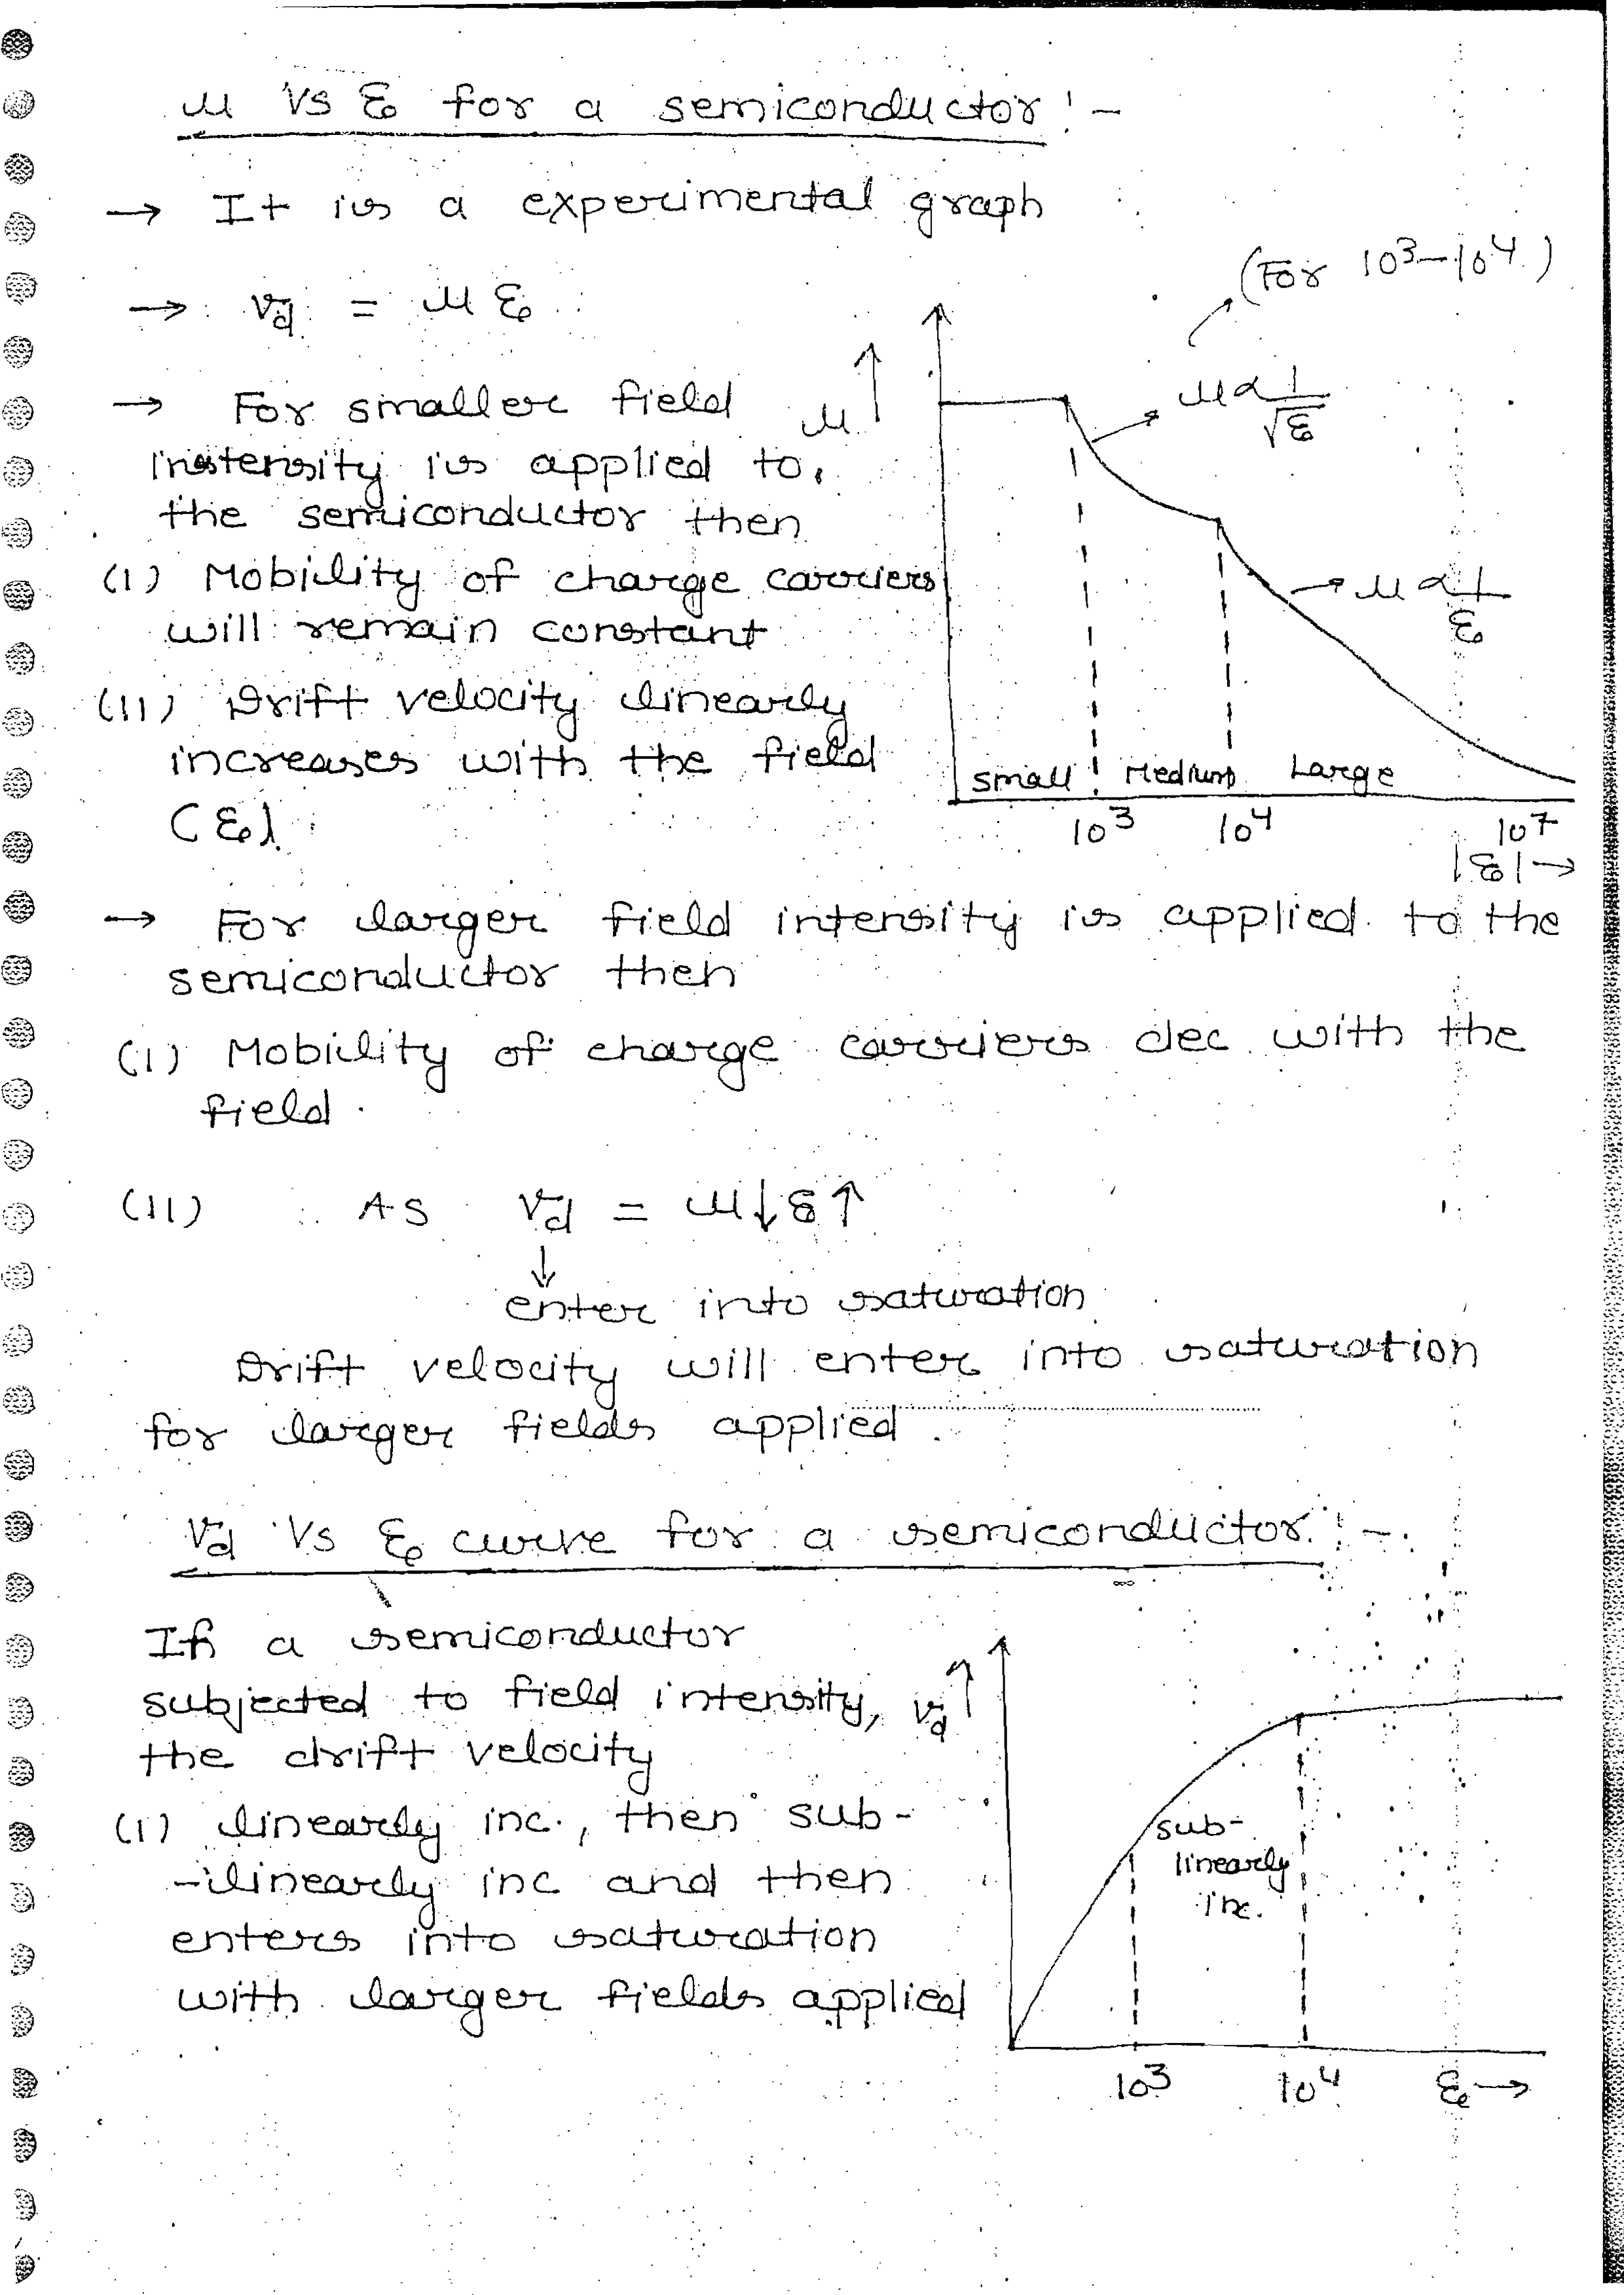 μ Vs Ɛ for a semiconductor :-
→ It is a experimental graph
(For 10³-10⁴)
→ Vd = μ Ɛ
μ ↑
μ α 1/√Ɛ
→ For smaller field
instensity is applied to
the semiconductor then
(I) Mobility of charge carriers
will remain constant
μ α 1/Ɛ
(II) Drift velocity linearly
increases with the field
(Ɛ).
small Medium Large
10³ 10⁴ 10⁷
|Ɛ| →
→ For larger field intensity is applied to the
semiconductor then
(I) Mobility of charge carriers dec with the
field.
(II) As Vd = μ↓ Ɛ↑
↓
enter into saturation
Drift velocity will enter into saturation
for larger fields applied.
Vd Vs Ɛ curve for a semiconductor :-
If a semiconductor
subjected to field intensity,
the drift velocity
Vd ↑
(I) linearly inc., then sub-
-linearly inc and then
enters into saturation
with larger fields applied
sub-
linearly
inc.
10³ 10⁴ Ɛ →